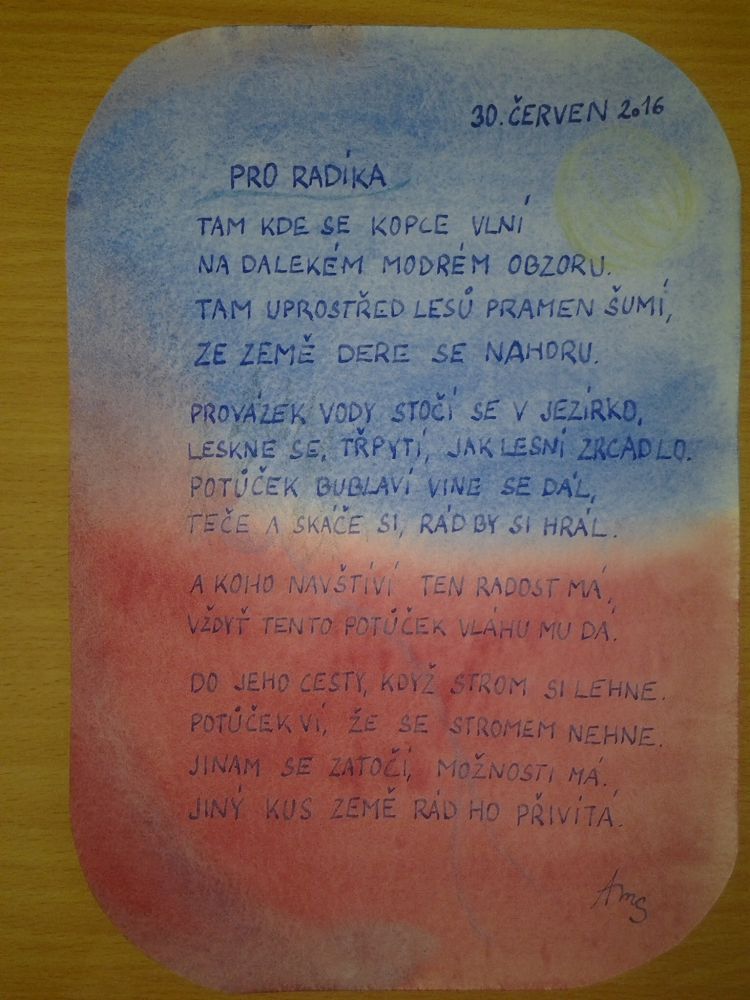 30. ČERVEN 2016
PRO RADÍKA
TAM KDE SE KOPCE VLNÍ
NA DALEKÉM MODRÉM OBZORU.
TAM UPROSTŘED LESŮ PRAMEN ŠUMÍ,
ZE ZEMĚ DERE SE NAHORU.
PROVÁZEK VODY STOČÍ SE V JEZÍRKO,
LESKNE SE, TŘPYTÍ, JAK LESNÍ ZRCADLO.
POTŮČEK BUBLAVÍ VINE SE DÁL,
TEČE A SKÁČE SI, RÁD BY SI HRÁL.
A KOHO NAVŠTÍVÍ TEN RADOST MÁ,
VŽDYŤ TENTO POTŮČEK VLÁHU MU DÁ.
DO JEHO CESTY, KDYŽ STROM SI LEHNE.
POTŮČEK VÍ, ŽE SE STROMEM NEHNE.
JINAM SE ZATOČÍ, MOŽNOSTI MÁ,
JINÝ KUS ZEMĚ RÁD HO PŘIVÍTÁ.
AmS